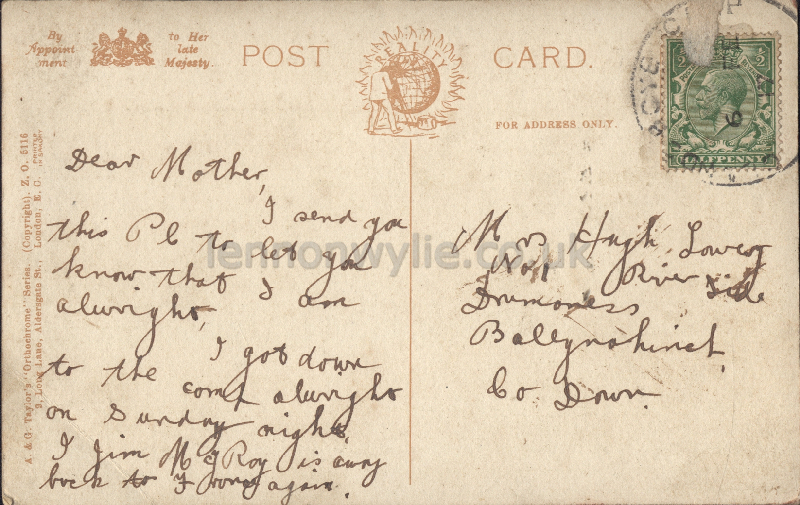 By
Appoint
ment
to Her
late
Majesty.
POST
REALITY
CARD.
FOR ADDRESS ONLY.
HALFPENNY
A. & G. Taylor's "Orthochrome" Series. (Copyright). Z. O. 5116
9, Long Lane, Aldersgate St., London, E. C.
Dear Mother,
I send you
this Pc to let you
know that I am
alwright,
I got down
to the camp alwright
on Sunday night.
I Jim McIRoy is away
back to again.
Mrs Hugh Lowery
No 1 River Side
Drumaness
Ballynahinch
Co Down.
lennonwylie.co.uk